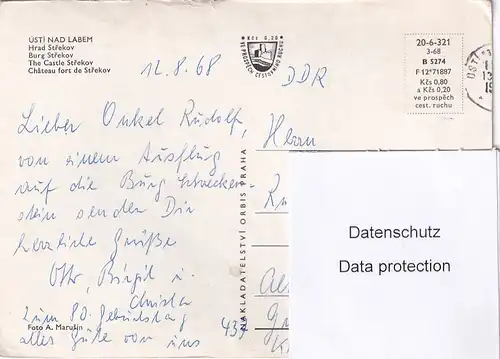 ÚSTÍ NAD LABEM
Hrad Střekov
Burg Střekov
The Castle Střekov
Château fort de Střekov
Kčs 0,20
VE PROSPĚCH CESTOVNÍHO RUCHU
20-6-321
3-68
B 5274
F 12*71887
Kčs 0,80
a Kčs 0,20
ve prospěch
cest. ruchu
ÚSTÍ
12.8.68
DDR
Lieber Onkel Rudolf,
von einem Ausflug
auf die Burg Schrecken-
stein senden Dir
herzliche Grüße
Otto, Birgit u.
Christa
zum 80. Geburtstag
alles Gute von uns
Foto A. Marušin
NAKLADATELSTVÍ ORBIS PRAHA
Herrn
Datenschutz
Data protection